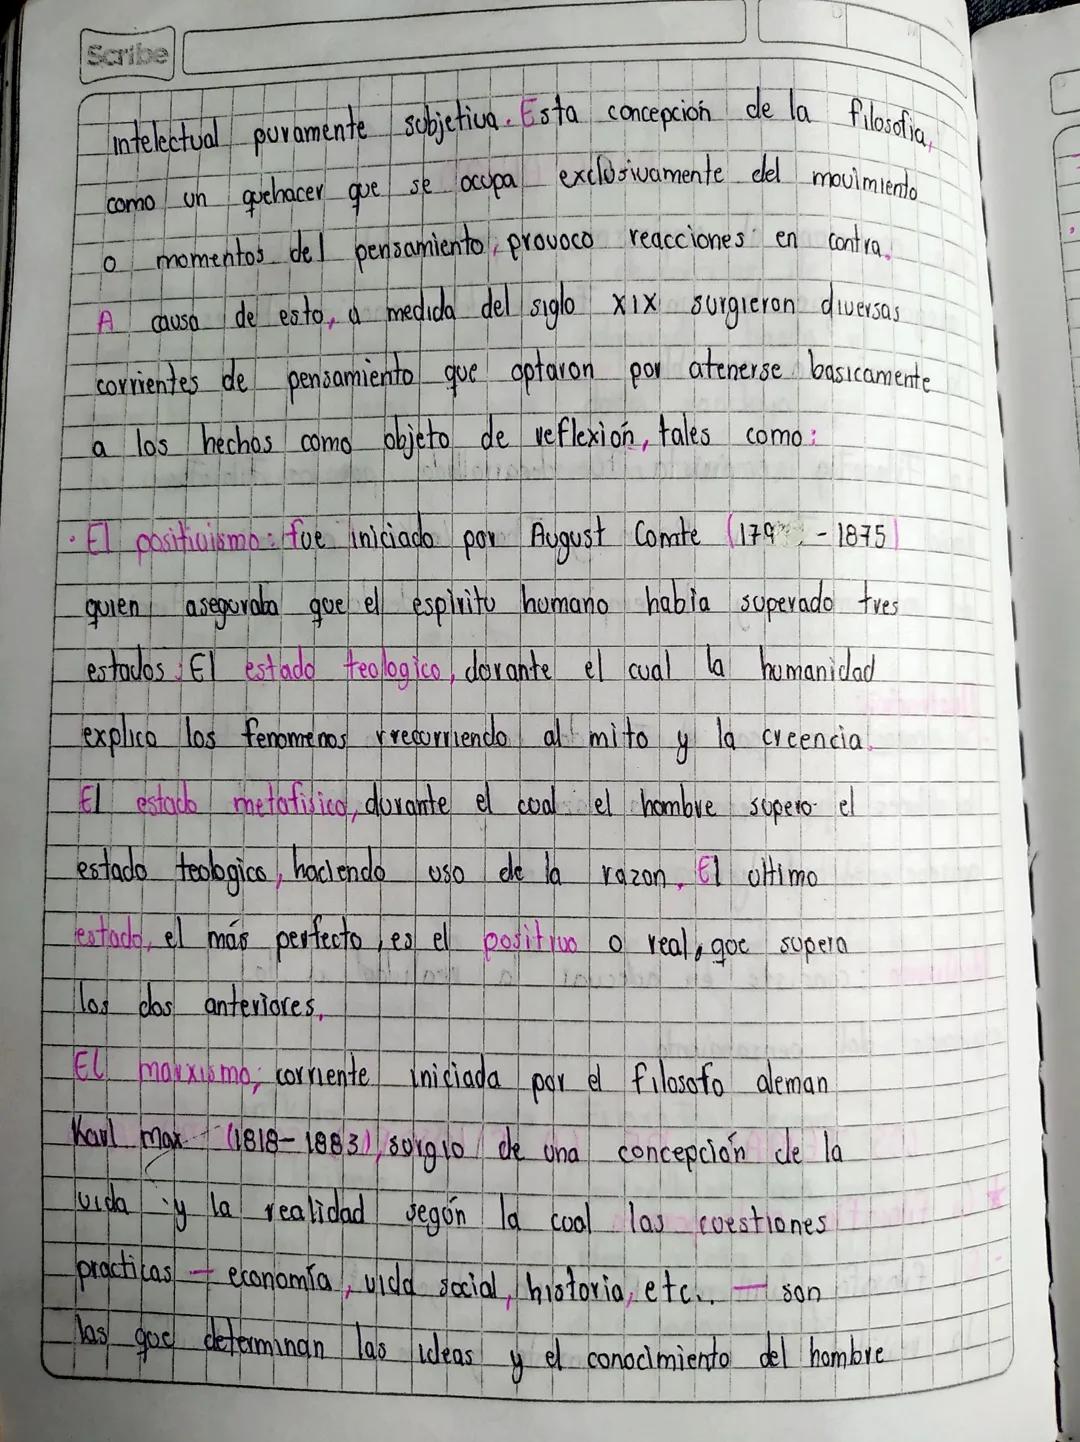 Scribe
intelectual puramente subjetiva. Esta concepción de la filosofia,
como un quehacer que se ocupa exclusivamente del movimiento
o momentos del pensamiento, provoco reacciones en contra.
A causa de esto, a medida del siglo XIX surgieron diversas
corrientes de pensamiento que optaron por atenerse basicamente
a los hechos como objeto de reflexión, tales como:
· El positivismo: fue iniciado por August Comte (179 - 1875)
quien aseguraba que el espiritu humano habia superado tres
estados: El estado teologico, durante el cual la humanidad
explico los fenomenos rrecurriendo al mito y la creencia.
El estado metafisico, durante el cual el hombre supero el
estado teologico, haciendo uso de la razon. El ultimo
estado, el más perfecto, es el positivo o real, que supera
los dos anteriores.
EL marxismo, corriente iniciada por el filosofo aleman
Karl max (1818-1883), surgio de una concepción de la
vida y la realidad según la cual las cuestiones
practicas - economía, vida social, historia, etc.. - son
las que determinan las ideas y el conocimiento del hombre